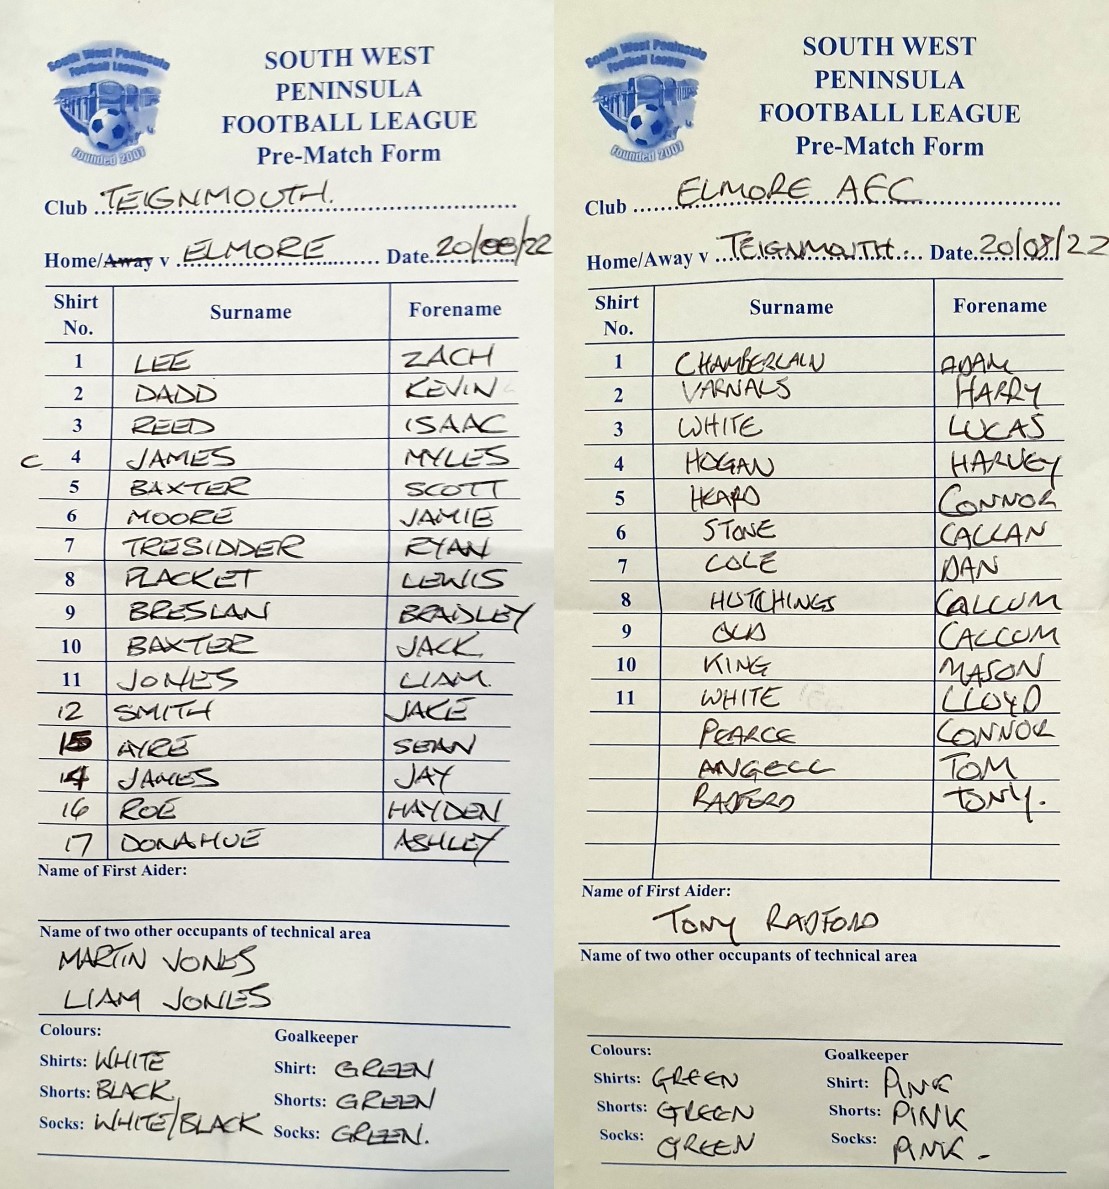 South West Peninsula
Football League
Founded 2007
SOUTH WEST
PENINSULA
FOOTBALL LEAGUE
Pre-Match Form
Club TEIGNMOUTH.
Home/Away v ELMORE Date 20/08/22
Shirt No. Surname Forename
1 LEE ZACH
2 DADD KEVIN
3 REED ISAAC
C 4 JAMES MYLES
5 BAXTER SCOTT
6 MOORE JAMIE
7 TRESIDDER RYAN
8 PLACKET LEWIS
9 BRESLAN BRADLEY
10 BAXTER JACK
11 JONES LIAM.
12 SMITH JAKE
15 AYRE SEAN
14 JAMES JAY
16 ROE HAYDEN
17 DONAHUE ASHLEY
Name of First Aider:
Name of two other occupants of technical area
MARTIN JONES
LIAM JONES
Colours: Goalkeeper
Shirts: WHITE Shirt: GREEN
Shorts: BLACK Shorts: GREEN
Socks: WHITE/BLACK Socks: GREEN.
South West Peninsula
Football League
Founded 2007
SOUTH WEST
PENINSULA
FOOTBALL LEAGUE
Pre-Match Form
Club ELMORE AFC
Home/Away v TEIGNMOUTH Date 20/08/22
Shirt No. Surname Forename
1 CHAMBERLAIN ADAM
2 VARNALS HARRY
3 WHITE LUCAS
4 HOGAN HARVEY
5 HEARD CONNOR
6 STONE CALLAN
7 COLE DAN
8 HUTCHINGS CALLUM
9 OLD CALLUM
10 KING MASON
11 WHITE LLOYD
PEARCE CONNOR
ANGELL TOM
RADFORD TONY.
Name of First Aider:
TONY RADFORD
Name of two other occupants of technical area
Colours: Goalkeeper
Shirts: GREEN Shirt: PINK
Shorts: GREEN Shorts: PINK
Socks: GREEN Socks: PINK -